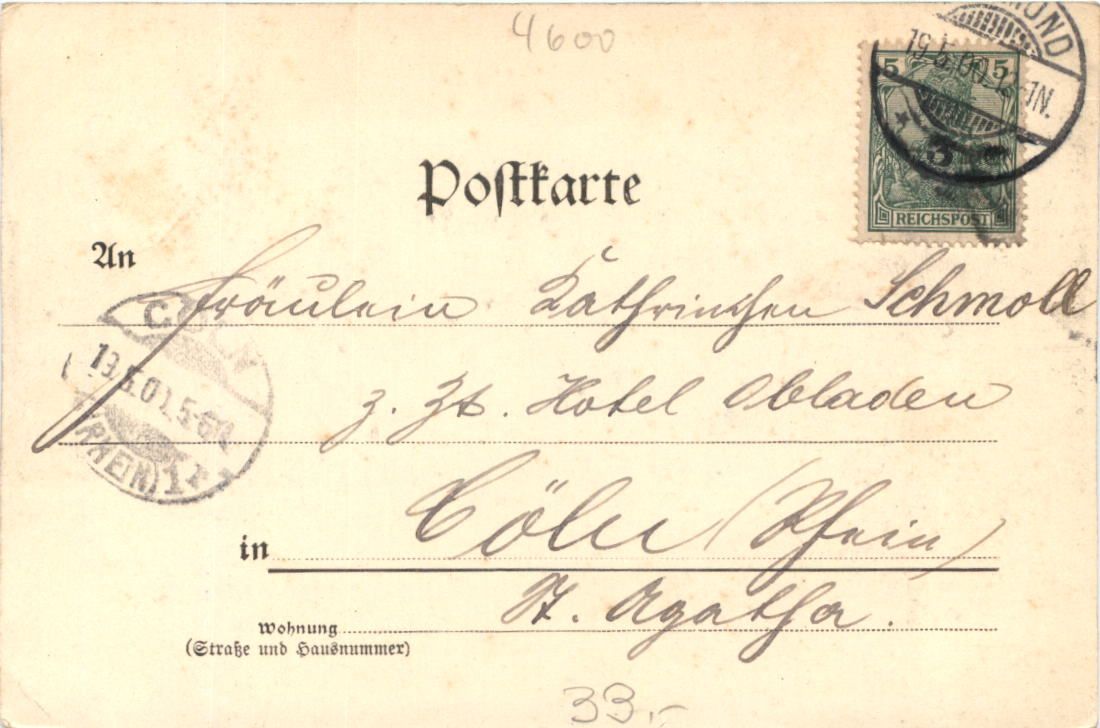 4600
MUND
19.5.00. 12-1N.
3
5 5
REICHSPOST
Poſtkarte
An
Fräulein Käthrinchen Schmoll
CÖLN
19.5.00.5-6N
(RHEIN) 1
z. Zt. Hotel Obladen
in Cöln (Rhein)
St. Agatha.
Wohnung
(Straße und Hausnummer)
33.-